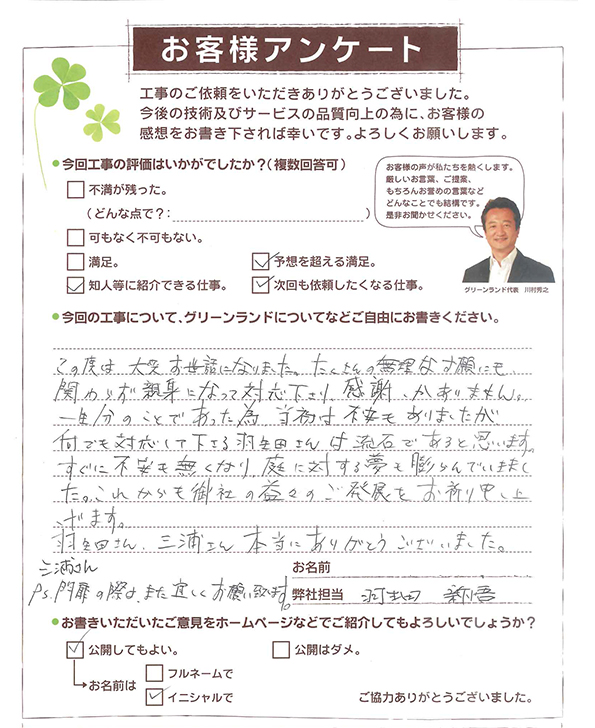 お客様アンケート
工事のご依頼をいただきありがとうございました。
今後の技術及びサービスの品質向上の為に、お客様の
感想をお書き下されば幸いです。よろしくお願いします。
●今回工事の評価はいかがでしたか?(複数回答可)
不満が残った。
(どんな点で?: )
可もなく不可もない。
満足。
予想を超える満足。
知人等に紹介できる仕事。
次回も依頼したくなる仕事。
お客様の声が私たちを熱くします。
厳しいお言葉、ご提案、
もちろんお誉めの言葉など
どんなことでも結構です。
是非お聞かせください。
グリーンランド代表 川村秀之
●今回の工事について、グリーンランドについてなどご自由にお書きください。
この度は大変お世話になりました。たくさんの無理なお願にも
関わらず親身になって対応下さり、感謝しかありません。
一生分のことであった為 当初は不安もありましたが
何でも対応して下さる羽生田さんは流石であると思います。
すぐに不安も無くなり庭に対する夢も膨らんでいまし
た。これからも御社の益々のご発展をお祈り申し上
げます。
羽生田さん、三浦さん本当にありがとうございました。
三浦さん
P.s.門扉の際は、また宜しくお願い致します。
お名前
弊社担当 羽生田 新吾
●お書きいただいたご意見をホームページなどでご紹介してもよろしいでしょうか?
公開してもよい。
公開はダメ。
お名前は
フルネームで
イニシャルで
ご協力ありがとうございました。